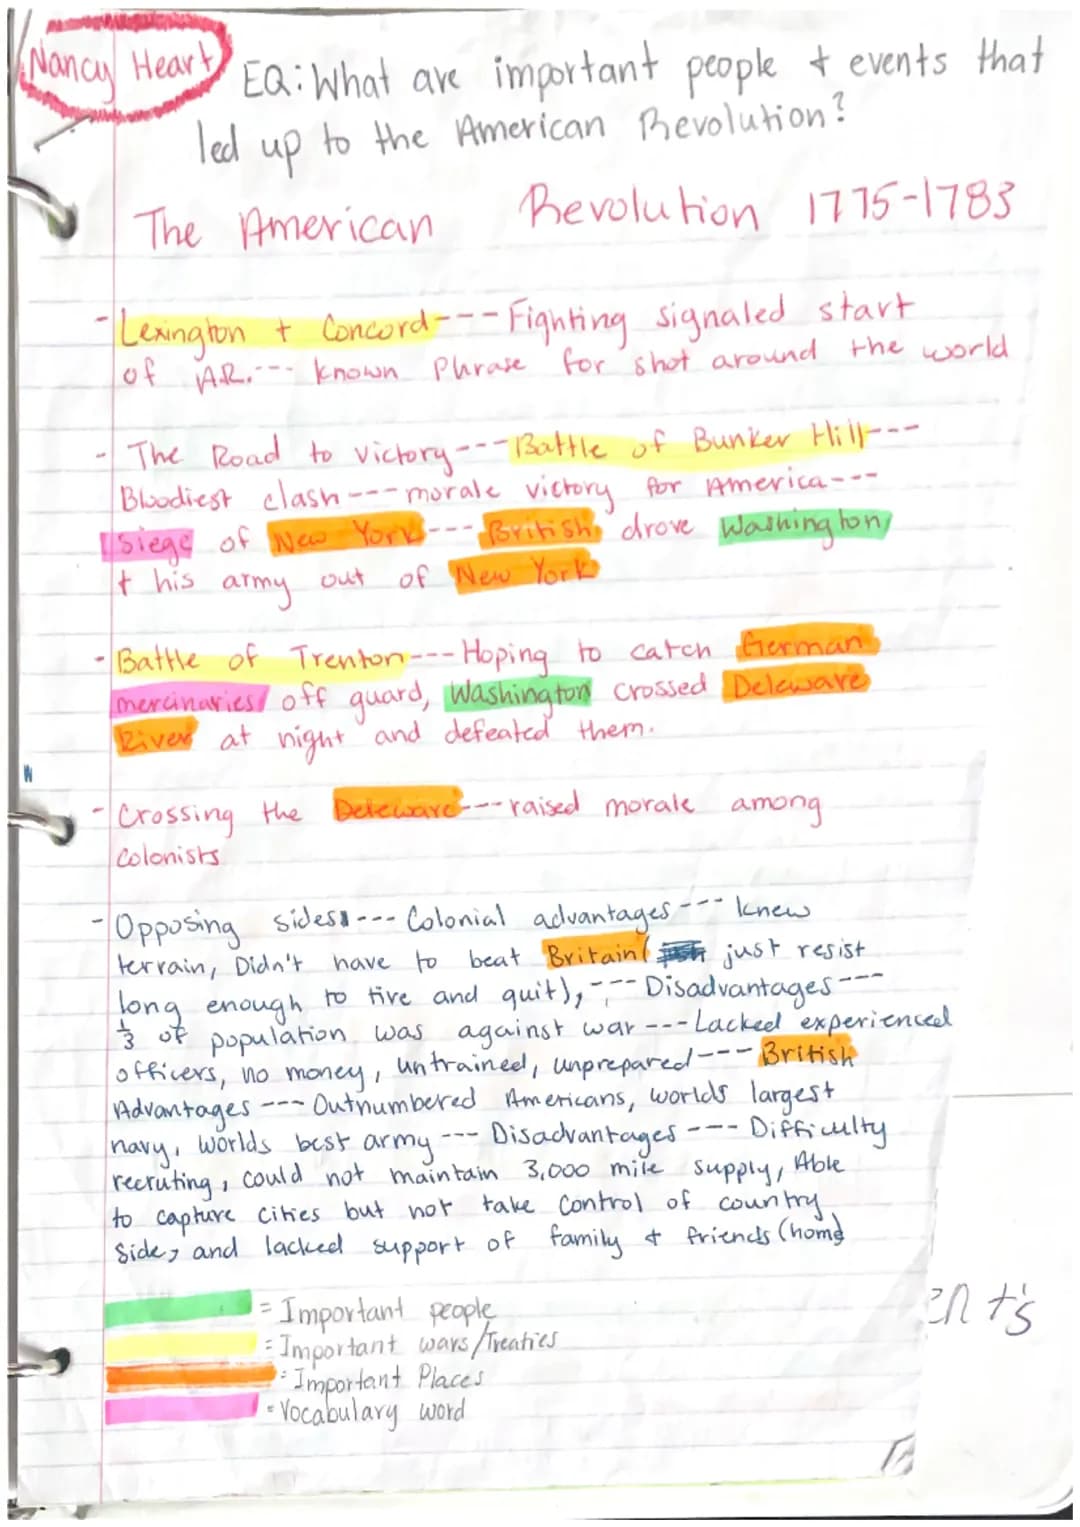 Nancy Heart
EQ: What are important people + events that
led up to the American Revolution?
The American Revolution 1775-1783
- Lexington + Concord --- Fighting signaled start
of AR. --- known Phrase for shot around the world
- The Road to victory --- Battle of Bunker Hill ---
Bloodiest clash --- morale victory for America ---
siege of New York --- British drove Washington
+ his army out of New York
- Battle of Trenton --- Hoping to catch German
mercinaries off guard, Washington crossed Deleware
River at night and defeated them.
- Crossing the Deleware --- raised morale among
colonists
- Opposing sides --- Colonial advantages --- knew
terrain, Didn't have to beat Britain( just resist
long enough to tire and quit), --- Disadvantages ---
1/3 of population was against war --- Lacked experienced
officers, no money, untrained, unprepared --- British
Advantages --- Outnumbered Americans, worlds largest
navy, worlds best army --- Disadvantages --- Difficulty
recruting, could not maintain 3,000 mile supply, Able
to capture cities but not take control of country
side, and lacked support of family + friends (home)
= Important people
= Important wars/Treaties
= Important Places
= Vocabulary word